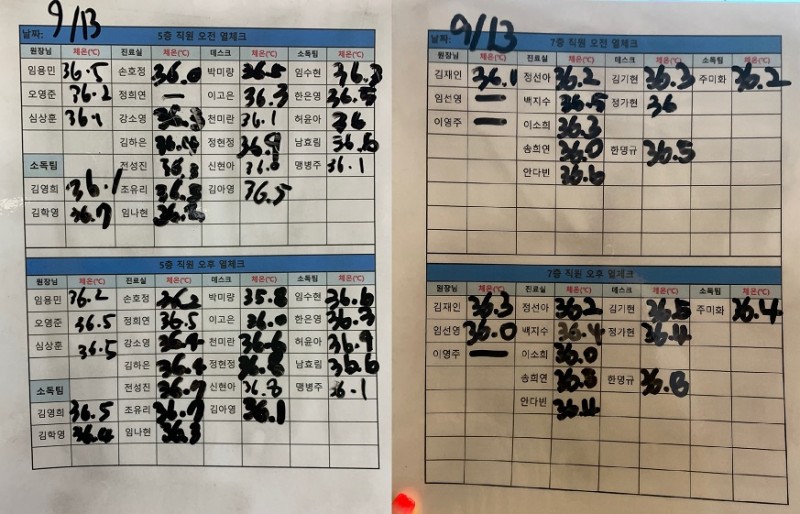 날짜: 9/13
5층 직원 오전 열체크
원장님 체온(℃) 진료실 체온(℃) 데스크 체온(℃) 소독팀 체온(℃)
임용민 36.5 손호정 36.0 박미량 36.5 임수현 36.3
오영준 36.2 정희연 — 이고은 36.3 한은영 36.5
심상훈 36.1 강소영 천미란 36.1 허윤아 36
김하은 36.4 정현정 36.9 남효림 36.6
소독팀 전성진 36.3 신현아 36.0 맹병주 36.1
김영희 36.1 조유리 36.5 김아영 36.5
김학영 36.7 임나현
5층 직원 오후 열체크
원장님 체온(℃) 진료실 체온(℃) 데스크 체온(℃) 소독팀 체온(℃)
임용민 36.2 손호정 36.2 박미량 35.8 임수현 36.6
오영준 36.5 정희연 36.5 이고은 36.0 한은영 36.3
심상훈 36.5 강소영 36.4 천미란 36.6 허윤아 36.9
김하은 36.4 정현정 남효림 36.6
소독팀 전성진 36.7 신현아 36.8 맹병주 36.1
김영희 36.5 조유리 36.7 김아영 36.1
김학영 36.4 임나현 36.3
날짜: 9/13
7층 직원 오전 열체크
원장님 체온(℃) 진료실 체온(℃) 데스크 체온(℃) 소독팀 체온(℃)
김재인 36.1 정선아 36.2 김기현 36.3 주미화 36.2
임선영 — 백지수 36.5 정가현 36
이영주 — 이소희 36.3
송희연 36.0 한명규 36.5
안다빈 36.6
7층 직원 오후 열체크
원장님 체온(℃) 진료실 체온(℃) 데스크 체온(℃) 소독팀 체온(℃)
김재인 36.3 정선아 36.2 김기현 36.5 주미화 36.4
임선영 36.0 백지수 36.4 정가현 36.4
이영주 — 이소희 36.0
송희연 36.3 한명규 36.8
안다빈 36.4